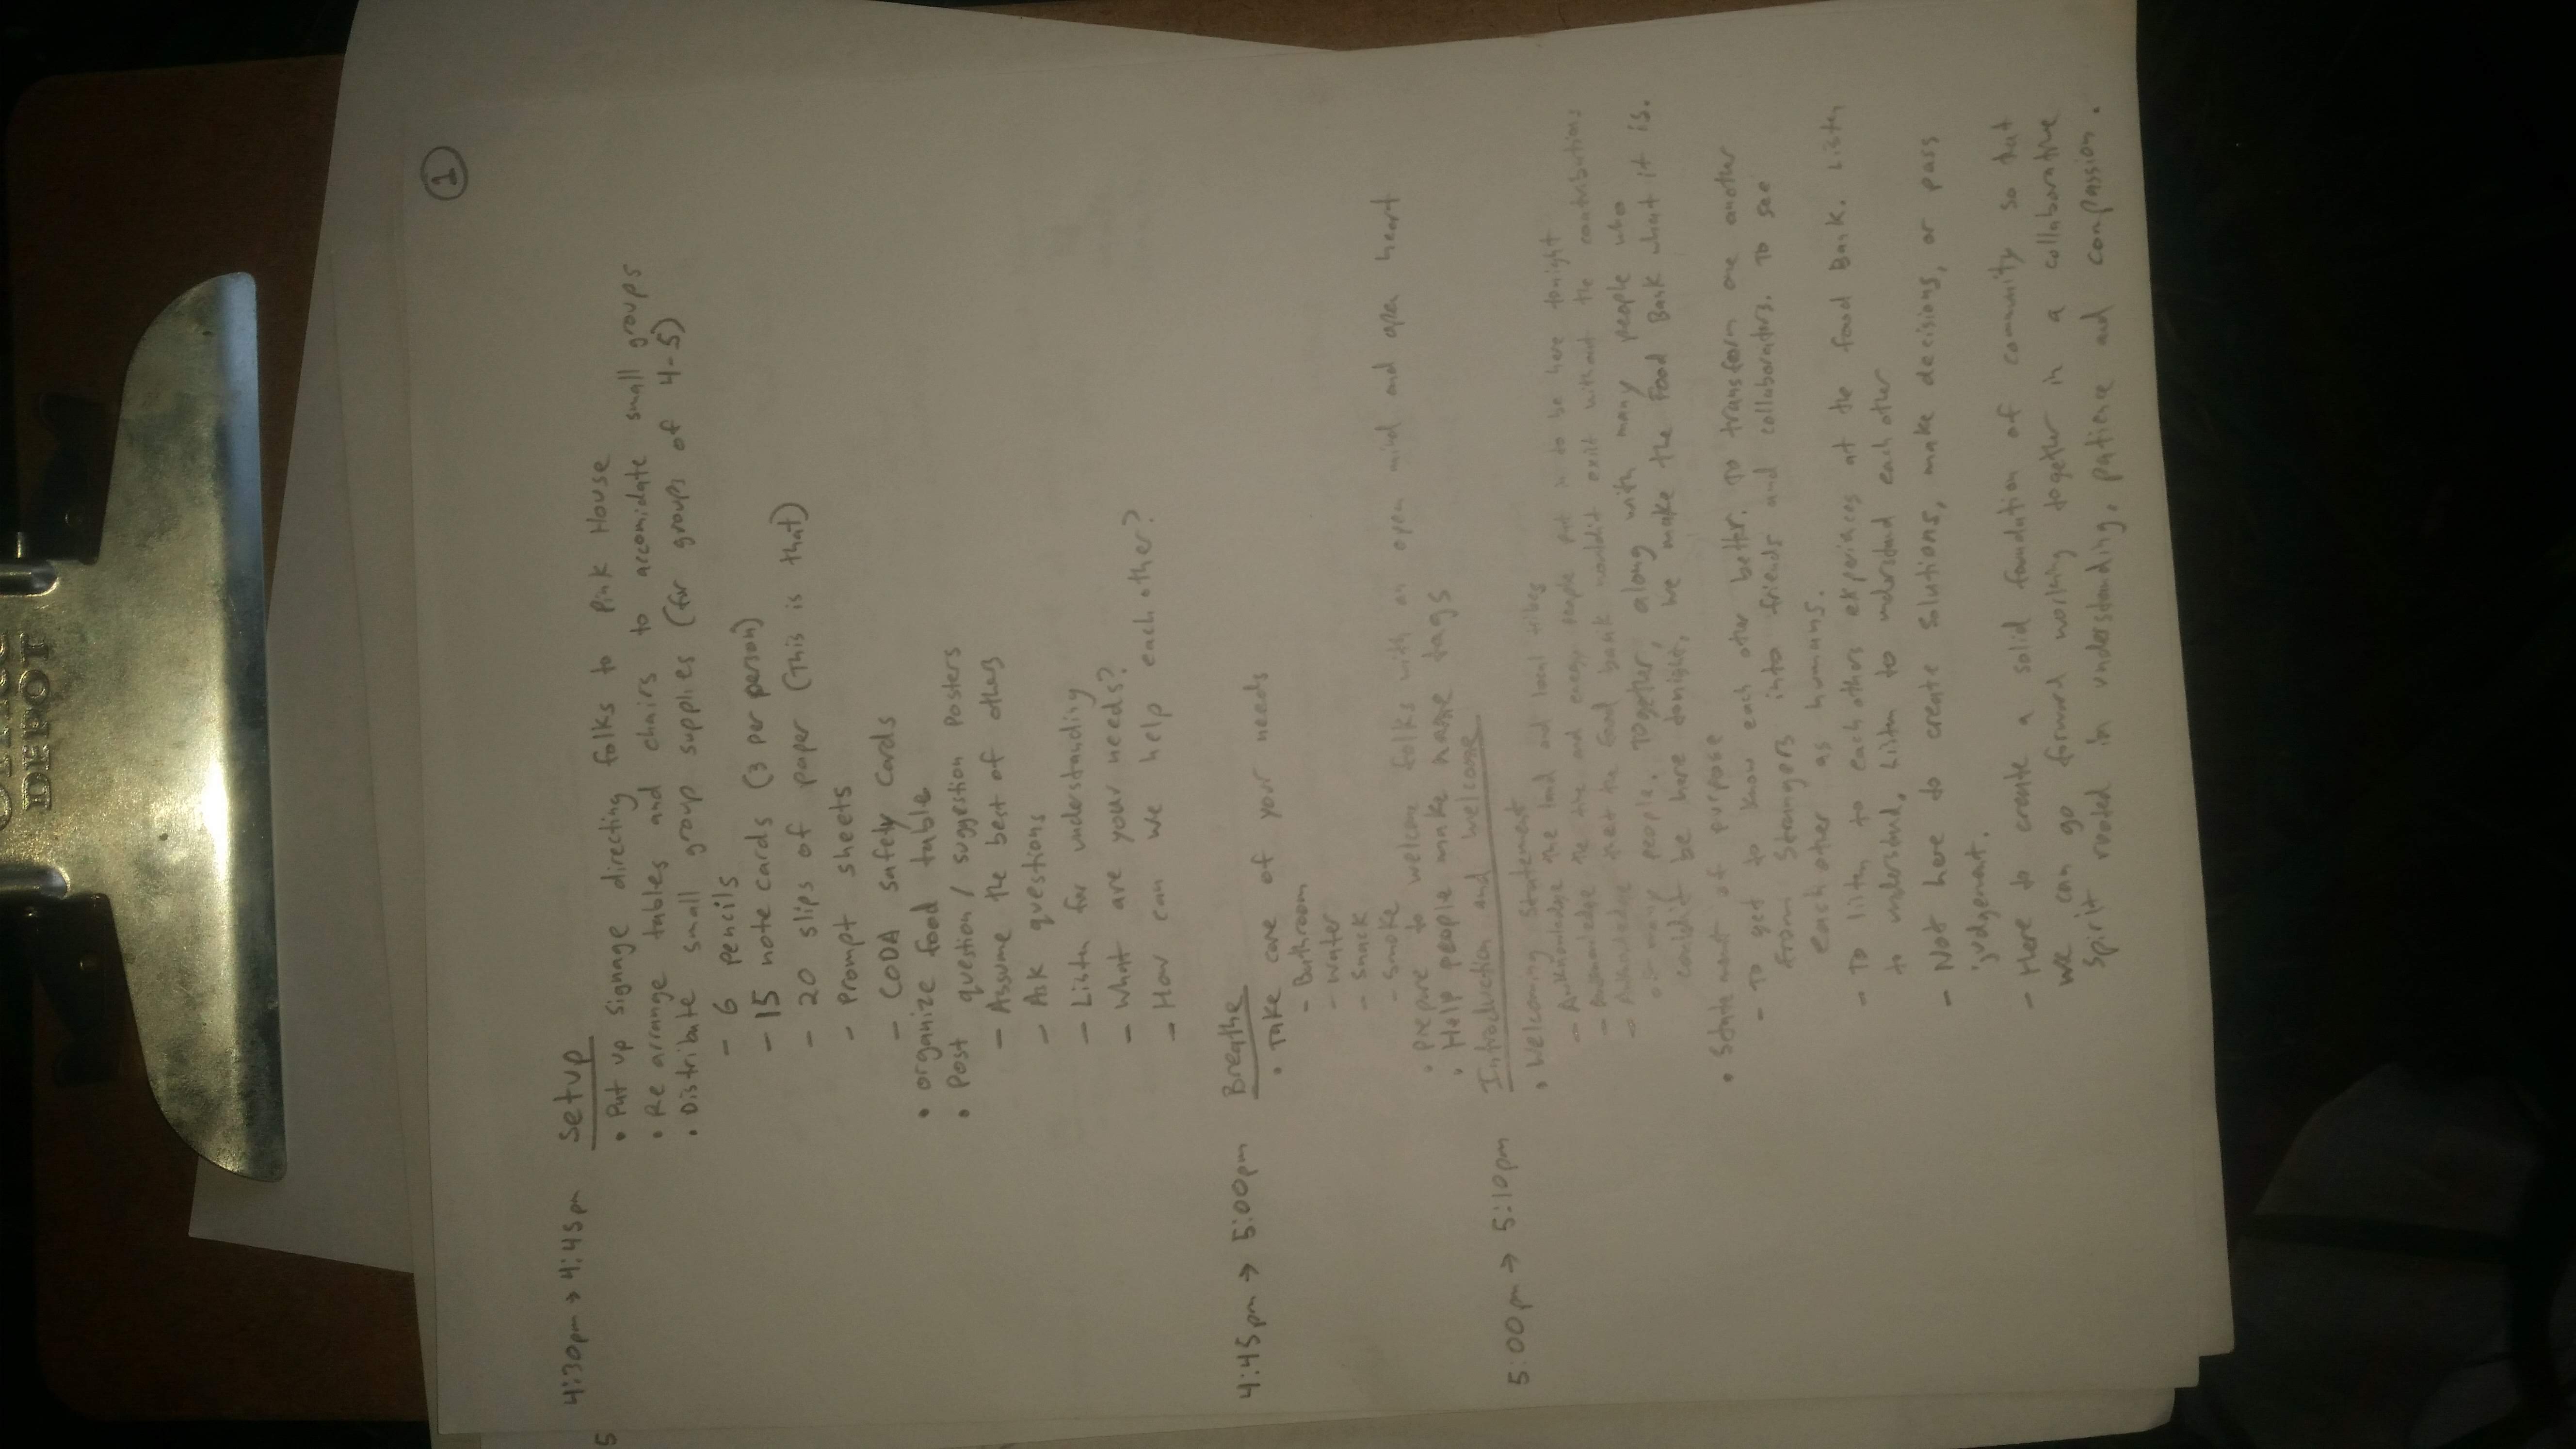 Office
DEPOT
1
5
4:30pm → 4:45pm Setup
• Put up signage directing folks to Pink House
• Re arrange tables and chairs to accomidate small groups
• Distribute small group supplies (for groups of 4-5)
- 6 pencils
- 15 note cards (3 per person)
- 20 slips of paper (This is that)
- Prompt sheets
- CODA safety Cards
• organize food table
• Post question / suggestion Posters
- Assume the best of others
- Ask questions
- Listen for understanding
- What are your needs?
- How can we help each other?
4:45pm → 5:00pm Breathe
• Take care of your needs
- Bathroom
- Water
- Snack
- Smoke
• Prepare to welcome folks with an open mind and open heart
• Help people make name tags
5:00pm → 5:10pm Introduction and Welcome
• Welcoming Statement
- Acknowledge the land and local tribes
- Acknowledge the time and energy people put in to be here tonight
- Acknowledge that the Food bank wouldn't exist without the contributions
of many people. Together, along with many people who
couldn't be here tonight, we make the Food Bank what it is.
• Statement of purpose
- To get to know each other better. To transform one another
from strangers into friends and collaborators. To see
each other as humans.
- To listen to each others experiences at the Food Bank. Listen
to understand. Listen to understand each other
- Not here to create solutions, make decisions, or pass
judgement.
- Here to create a solid foundation of community so that
we can go forward working together in a collaborative
spirit rooted in understanding, patience and compassion.